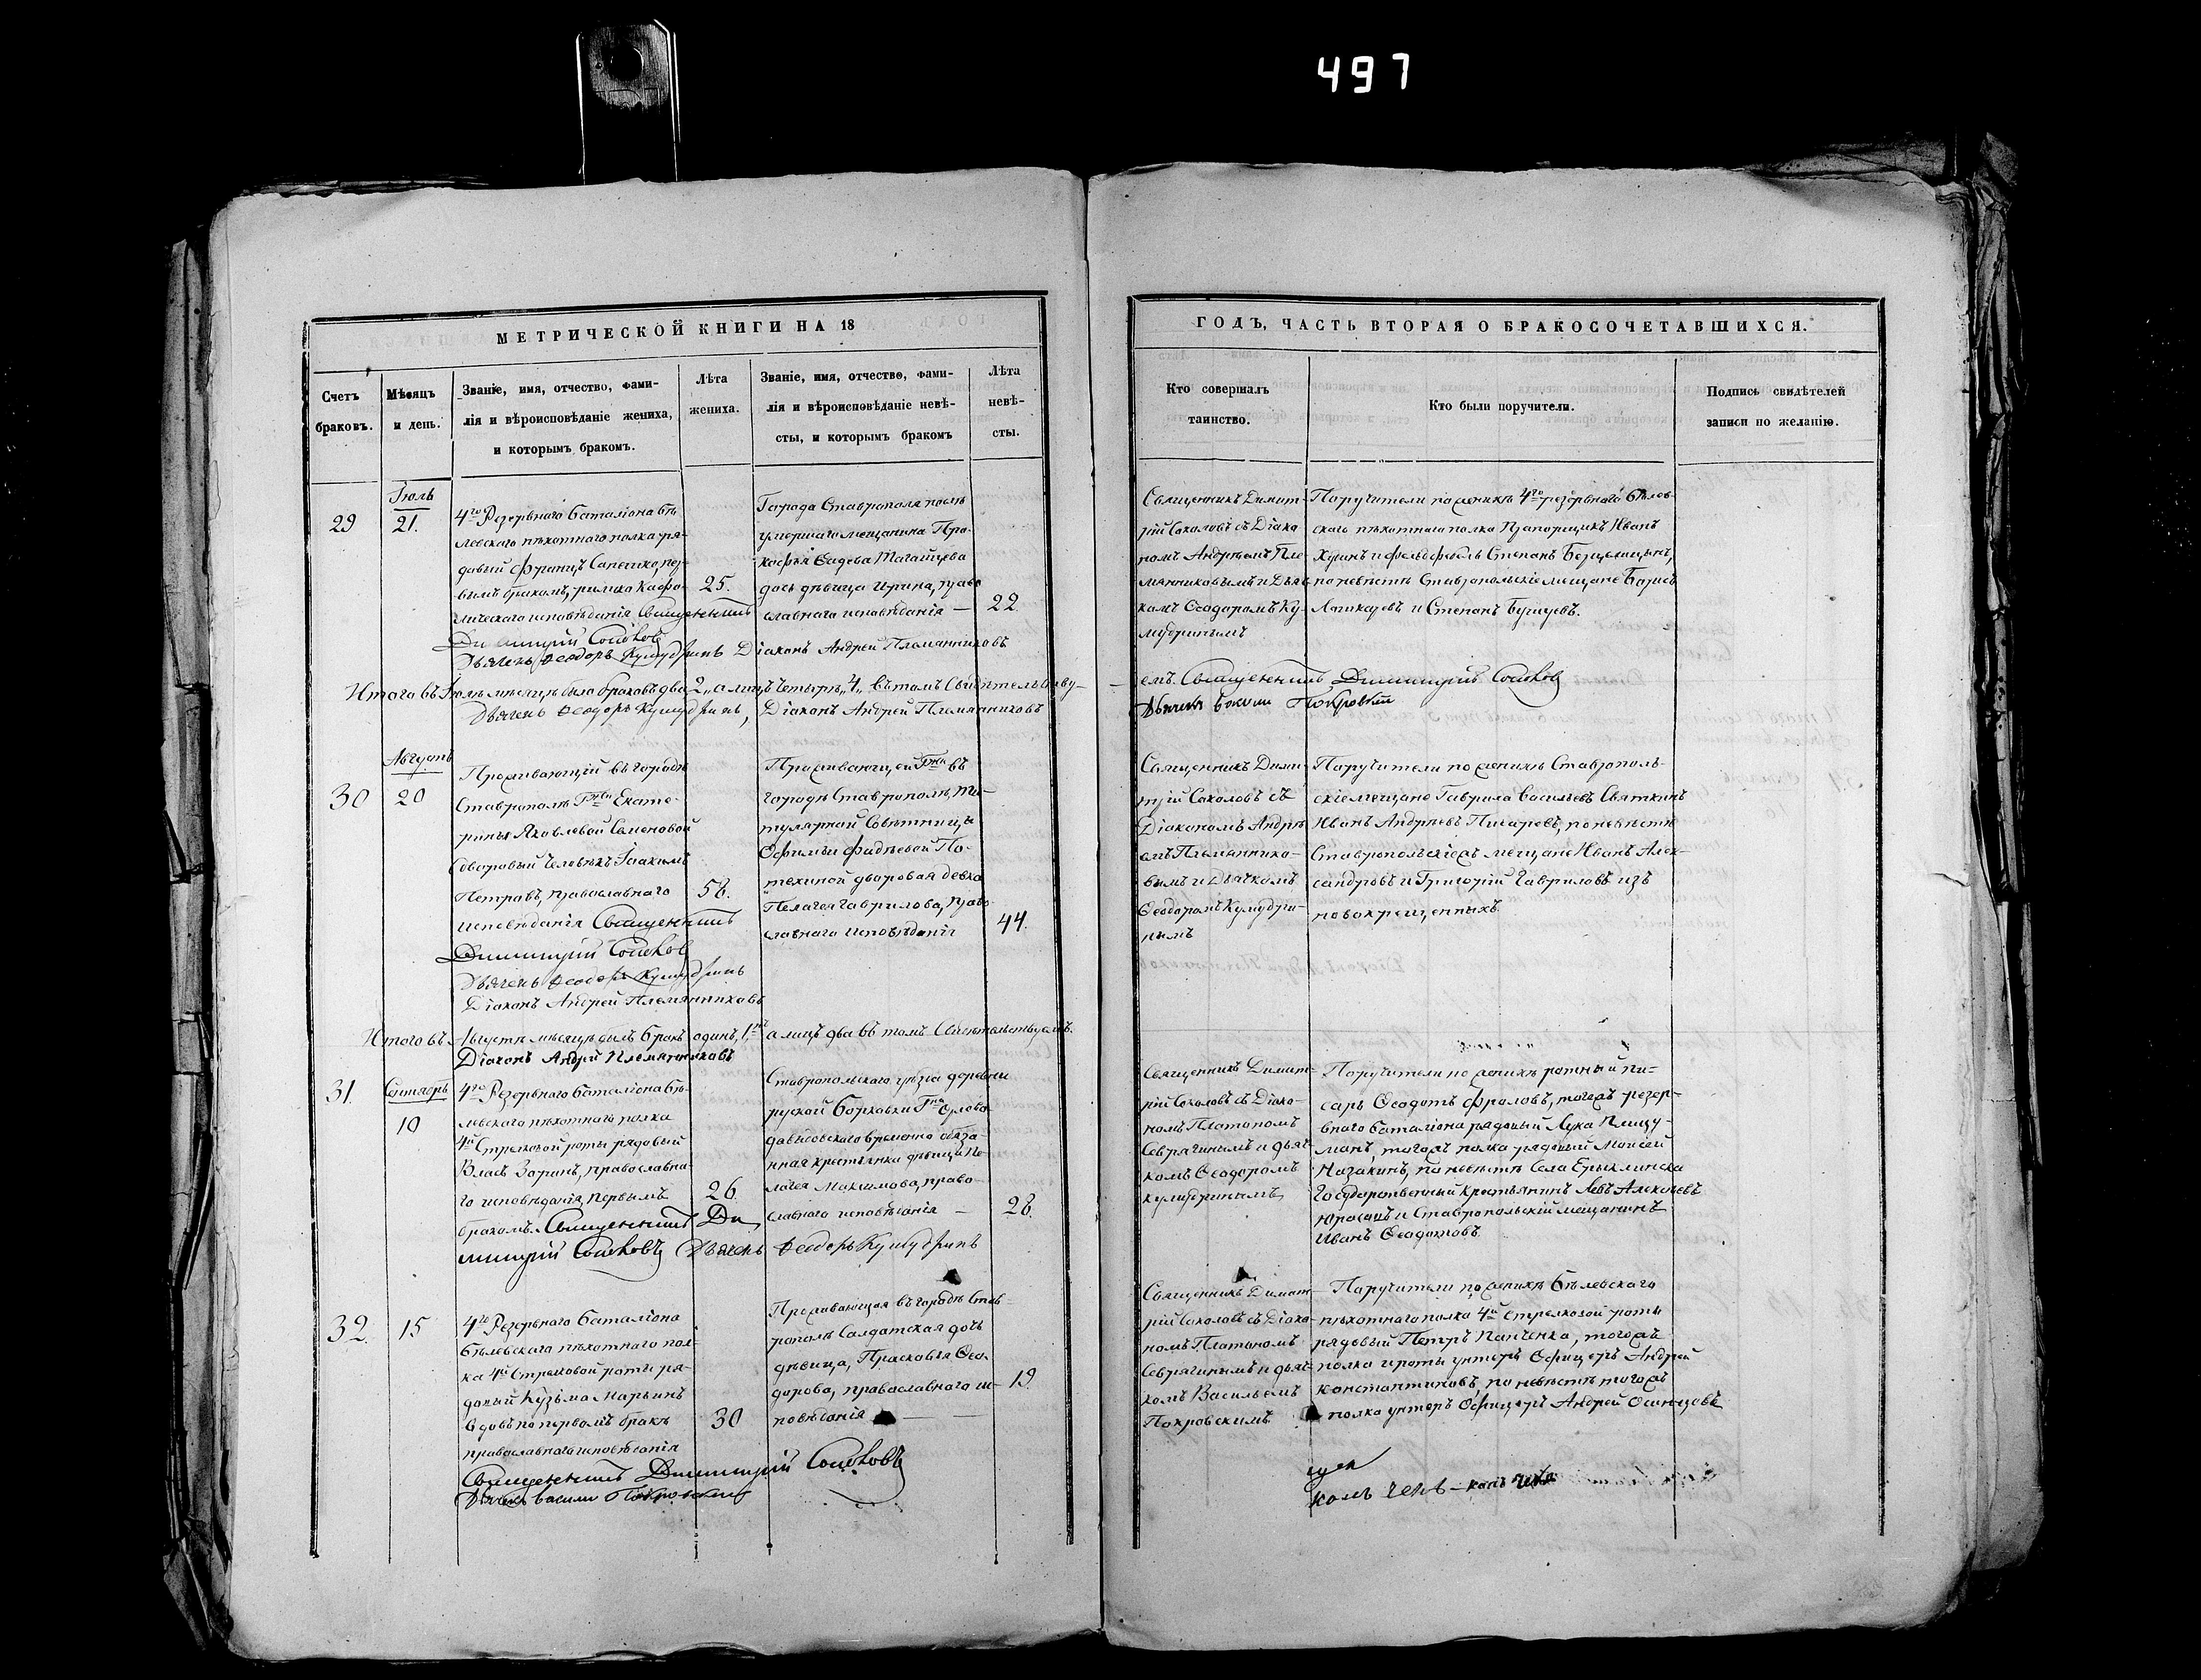 497
МЕТРИЧЕСКОЙ КНИГИ НА 18
Счетъ браковъ.
Мѣсяцъ и день.
Званіе, имя, отчество, фами-
лія и вѣроисповѣданіе жениха,
и которымъ бракомъ.
Лѣта
жениха.
Званіе, имя, отчество, фами-
лія и вѣроисповѣданіе невѣ-
сты, и которымъ бракомъ
Лѣта
невѣ-
сты.
29
Іюль
21.
4го Резервнаго баталіона Бѣ-
левскаго пѣхотнаго полка ря-
довый Францъ Сапешко, пер-
вымъ бракомъ, римско Кафо-
лическаго исповѣданія Священникъ
Димитрій Соколовъ
25.
Города Ставрополя послѣ
умершаго мещанина Про-
кофья
дочь девица Ирина, право
славнаго исповѣданія —
22
Дьячекъ Ѳеодоръ Кумудринъ Діаконъ Андрей Племянниковъ
Итого въ Іюлѣ мѣсяцѣ было браковъ два 2, а лицъ четыре „4„ въ томъ Свидѣтельству-
Дьячекъ Ѳеодоръ Кумудринъ, Діаконъ Андрей Племянниковъ
30
Августъ
20
Проживающій въ городѣ
Ставрополѣ Гжи Екате-
рины Яковлевой Семеновой
дворовый человѣкъ Іоакимъ
Петровъ, православнаго
исповѣданія Священникъ
Димитрій Соколовъ
Дьячекъ Ѳеодоръ Кумудринъ
Діаконъ Андрей Племянниковъ
58.
Проживающей Гжи въ
городѣ Ставрополѣ, ти-
тулярной Совѣтницы
Ефимьи Фадѣевой По-
техиной дворовая девка
Пелагея Гаврилова, право
славнаго исповѣданія
44.
Итого въ Августѣ мѣсяцѣ былъ бракъ одинъ, 1, а лицъ два въ томъ Свидѣтельствуемъ.
Діаконъ Андрей Племянниковъ
31.
Сентябрь
10
4го Резервнаго баталіона Бѣ-
левскаго пѣхотнаго полка
4й Стрелковой роты рядовый
Власъ Зоринъ, православна-
го исповѣданія, первымъ
бракомъ. Священникъ Ди
митрій Соколовъ Дьячекъ Ѳеодоръ Кумудринъ
26.
Ставропольскаго уѣзда деревни
руской Борковки Гна Орлова
давыдовскаго временно обяза-
нная крестьянка девица Пе
лагея Максимова, право-
славнаго исповѣданія —
28.
32.
15
4го Резервнаго баталіона
Бѣлевскаго пѣхотнаго пол-
ка 4й Стрелковой роты ря-
довый Кузьма Марьинъ
вдовъ по первомъ бракѣ
православнаго исповѣданія
Священникъ Димитрій Соколовъ
Дьячекъ Василій Покровскій
30
Проживающая въ городѣ Став-
рополѣ Салдатская дочь
девица, Прасковья Ѳео-
дорова, православнаго ис-
повѣданія
19.
ГОДЪ, ЧАСТЬ ВТОРАЯ О БРАКОСОЧЕТАВШИХСЯ.
Кто совершалъ
таинство.
Кто были поручители.
Подпись свидѣтелей
записи по желанію.
Священникъ Димит-
рій Соколовъ съ Діако
номъ Андреемъ Пле-
мянниковымъ и Дьяч
комъ Ѳеодоромъ Ку-
мудринымъ
Поручители по женихѣ 4го резервнаго Бѣлев-
скаго пѣхотнаго полка Прапорщикъ Иванъ
и фельдфебель Степанъ
по невѣстѣ Ставропольскіе мещане Борисъ
и Степанъ
емъ. Священникъ Димитрій Соколовъ
Дьячекъ Василій Покровскій
Священникъ Дими-
трій Соколовъ съ
Діакономъ Андре
емъ Племяннико-
вымъ и Дьячкомъ
Ѳеодоромъ Кумудри-
нымъ
Поручители по женихѣ Ставрополь-
скіе мещане Гаврила Васильевъ Святкинъ
Иванъ Андреевъ Писаревъ, по невѣстѣ
Ставропольскіежъ мещане Иванъ Алек-
сандровъ и Григорій Гавриловъ изъ
новокрещенныхъ.
Священникъ Димит-
рій Соколовъ съ Діако-
номъ Платономъ
Севрягинымъ и дьяч-
комъ Ѳеодоромъ
кумудринымъ
Поручители по женихѣ ротный пи-
сарь Ѳеодотъ Фроловъ, тогожъ резер-
внаго баталіона рядовый Лука
тогожъ полка рядовый Моисей
Назакинъ, по невѣстѣ села Ерыклинска
Государственный крестьянинъ Левъ Алексѣевъ
и Ставропольскій мещанинъ
Иванъ Ѳеодотовъ.
Священникъ Димит-
рій Соколовъ съ Діако-
номъ Платономъ
Севрягинымъ и дьяч-
комъ Васильемъ
Покровскимъ
Поручители по женихѣ Бѣлевскаго
пѣхотнаго полка 4й Стрелковой роты
рядовый Петръ Панченка, тогожъ
полка и роты унтеръ Офицеръ Андрей
Константиновъ, по невѣстѣ тогожъ
полка унтеръ Офицеръ Андрей